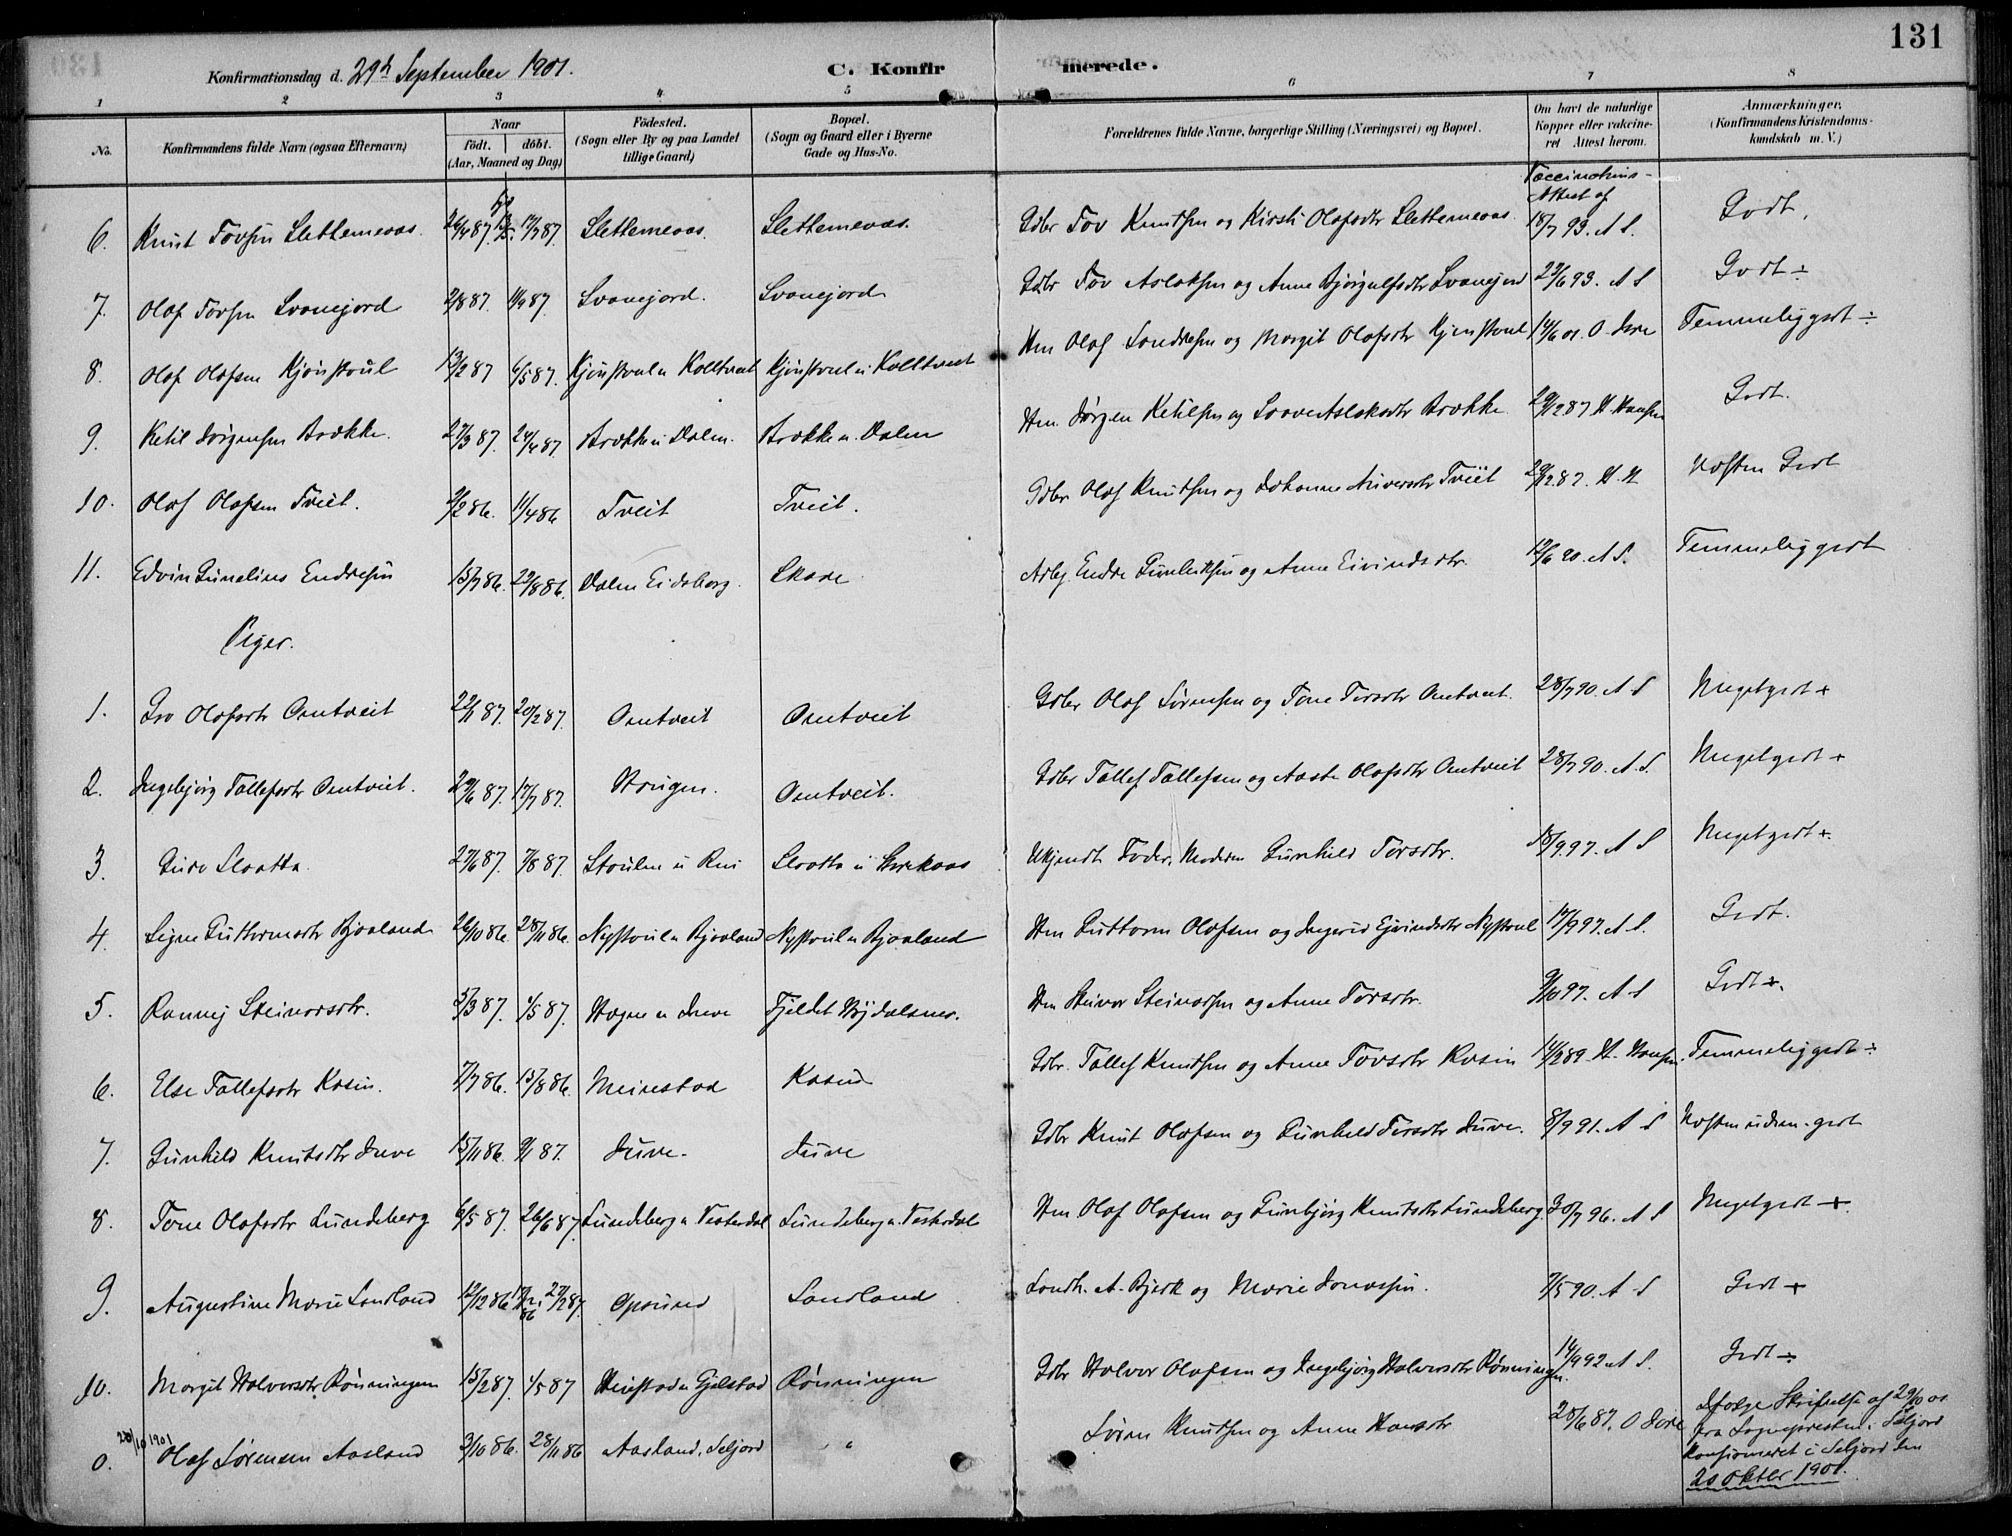 131
Konfirmationsdag d. 29de September 1901.
C. Konfir
merede.
1 2 3 4 5 6 7 8
No.
Konfirmandens fulde Navn (ogsaa Efternavn)
Naar
födt. döbt.
(Aar, Maaned og Dag)
Födested.
(Sogn eller By og paa Landet
tillige Gaard)
Bopæl.
(Sogn og Gaard eller i Byerne
Gade og Hus-No.
Forældrenes fulde Navne, borgerlige Stilling (Næringsvei) og Bopæl.
Om havt de naturlige
Kopper eller vakcine-
ret Attest herom.
Anmærkninger.
(Konfirmandens Kristendoms-
kundskab m. V.)
Vaccinations-
Attest af
6. Knut Tovsen Slettemeaas. 26/4 87. 17/7 87. Slettemeaas. Slettemeaas. Gdbr Tov Knutsen og Kirsti Olafsdtr Slettemeaas. 18/7 93. A S. Godt.
7. Olaf Tovsen Svanejord 2/8 87. 11/9 87. Svanejord. Svanejord Gdbr Tov Aslaksen og Anne Bjørgulfsdtr Svanejord 23/6 93. A S Godt ÷
8. Olaf Olafsen Kjønstaul 13/2 87 6/5 87. Kjønstaul u Kolltveit Kjønstaul u Kolltveit Hm Olaf Sondresen og Margit Olafsdtr Kjønstaul 14/6 01. O. Dore Temmelig godt ÷
9. Ketil Jørgensen Brække. 27/3 87. 24/4 87. Brække u Dalen. Brække u. Dalen Hm. Jørgen Ketilsen og Svave Aslaksdtr Brække 29/12 87 H Hansen Godt.
10. Olaf Olafsen Tveit. 2/2 86. 11/4 86 Tveit Tveit. Gdbr Olaf Knutsen og Johanne Aniversdtr Tveit 29/12 87. H. H Næsten Godt
11. Edvin Gunelius Endresen 15/7 86. 22/8 86. Dalen Eidsborg. Skare Arbej Endre Gunleiksen og Anne Eivindsdtr. 12/6 90. A S. Temmelig godt
Piger.
1. Gro Olafsdtr Omtveit 22/1 87. 20/2 87. Omtveit Omtveit Gdbr Olaf Sørensen og Tone Torsdtr Omtveit. 28/7 90. A S Meget godt +
2. Ingebjørg Tallefsdtr Omtveit. 29/6 87. 17/7 87. Haugen. Omtveit. Gdbr Tallef Tallefsen og Aaste Olafsdtr Omtveit 28/7 90. A. S. Meget godt +
3. Guro Slaatta. 27/6 87. 7/8 87. Staulen u Rui Slaatta u Borekaas Ukjendt Fader, Moderen Gunhild Torsdtr. 18/9 97. A S Meget godt +
4. Signe Guttormsdtr Bjaaland 26/10 86. 28/11 86. Nystaul u Bjaaland Nystaul u Bjaaland Hm Guttorm Olafsen og Ingerid Ejvindsdtr Nystaul 17/9 97. A S. Godt.
5. Rannej Steinarsdtr. 5/3 87. 1/5 87. Hagen u Juve Fjeldet Nydalsnes. Hm Steinar Steinarsen og Anne Torsdtr. 9/10 97. A S Godt +.
6. Else Tallefsdtr Kosin. 7/7 86. 15/8 86. Meinestad Kosin Gdbr. Tallef Knutsen og Anne Tovsdtr Kosin 14/2 89. H. Hansen. Temmelig godt ÷
7. Gunhild Knutsdtr Juve 15/11 86. 9/1 87. Juve. Juve Gdbr Knut Olafsen og Gunhild Torsdtr Juve. 8/9 91. A S Næsten udm. godt
8. Tone Olafsdtr Lundeberg 6/5 87. 26/6 87. Lundeberg u Vesterdal Lundeberg u Vesterdal Hm Olaf Olafsen og Gunbjørg Knutsdtr Lundeberg. 30/7 96. A S Meget godt +.
9. Augustine Marie Sandland 12/12 86. 27/2 87. Opsund Sandland Landh. A. Bjerk og Marie Jonassen. 7/5 90. A S Godt +
10. Margit Halvorsdtr Rønningen 15/2 87. 1/5 87 Meistad u Gjelstad Rønningen Gdbr Halvor Olafsen og Ingebjørg Halvorsdtr Rønningen. 14/9 92 A S. Godt ÷
20/10 1901
0. Olaf Sørensen Aasland 3/10 86. 28/11 86 Aasland, Seljord " Søren Knutsen og Anne Hansdtr 28/6 87. O Dore Ifølge Skrivelse af 29/10 01
fra Sognepresten i Seljord
konfirmeret i Seljord den
20 Oktbr 1901.